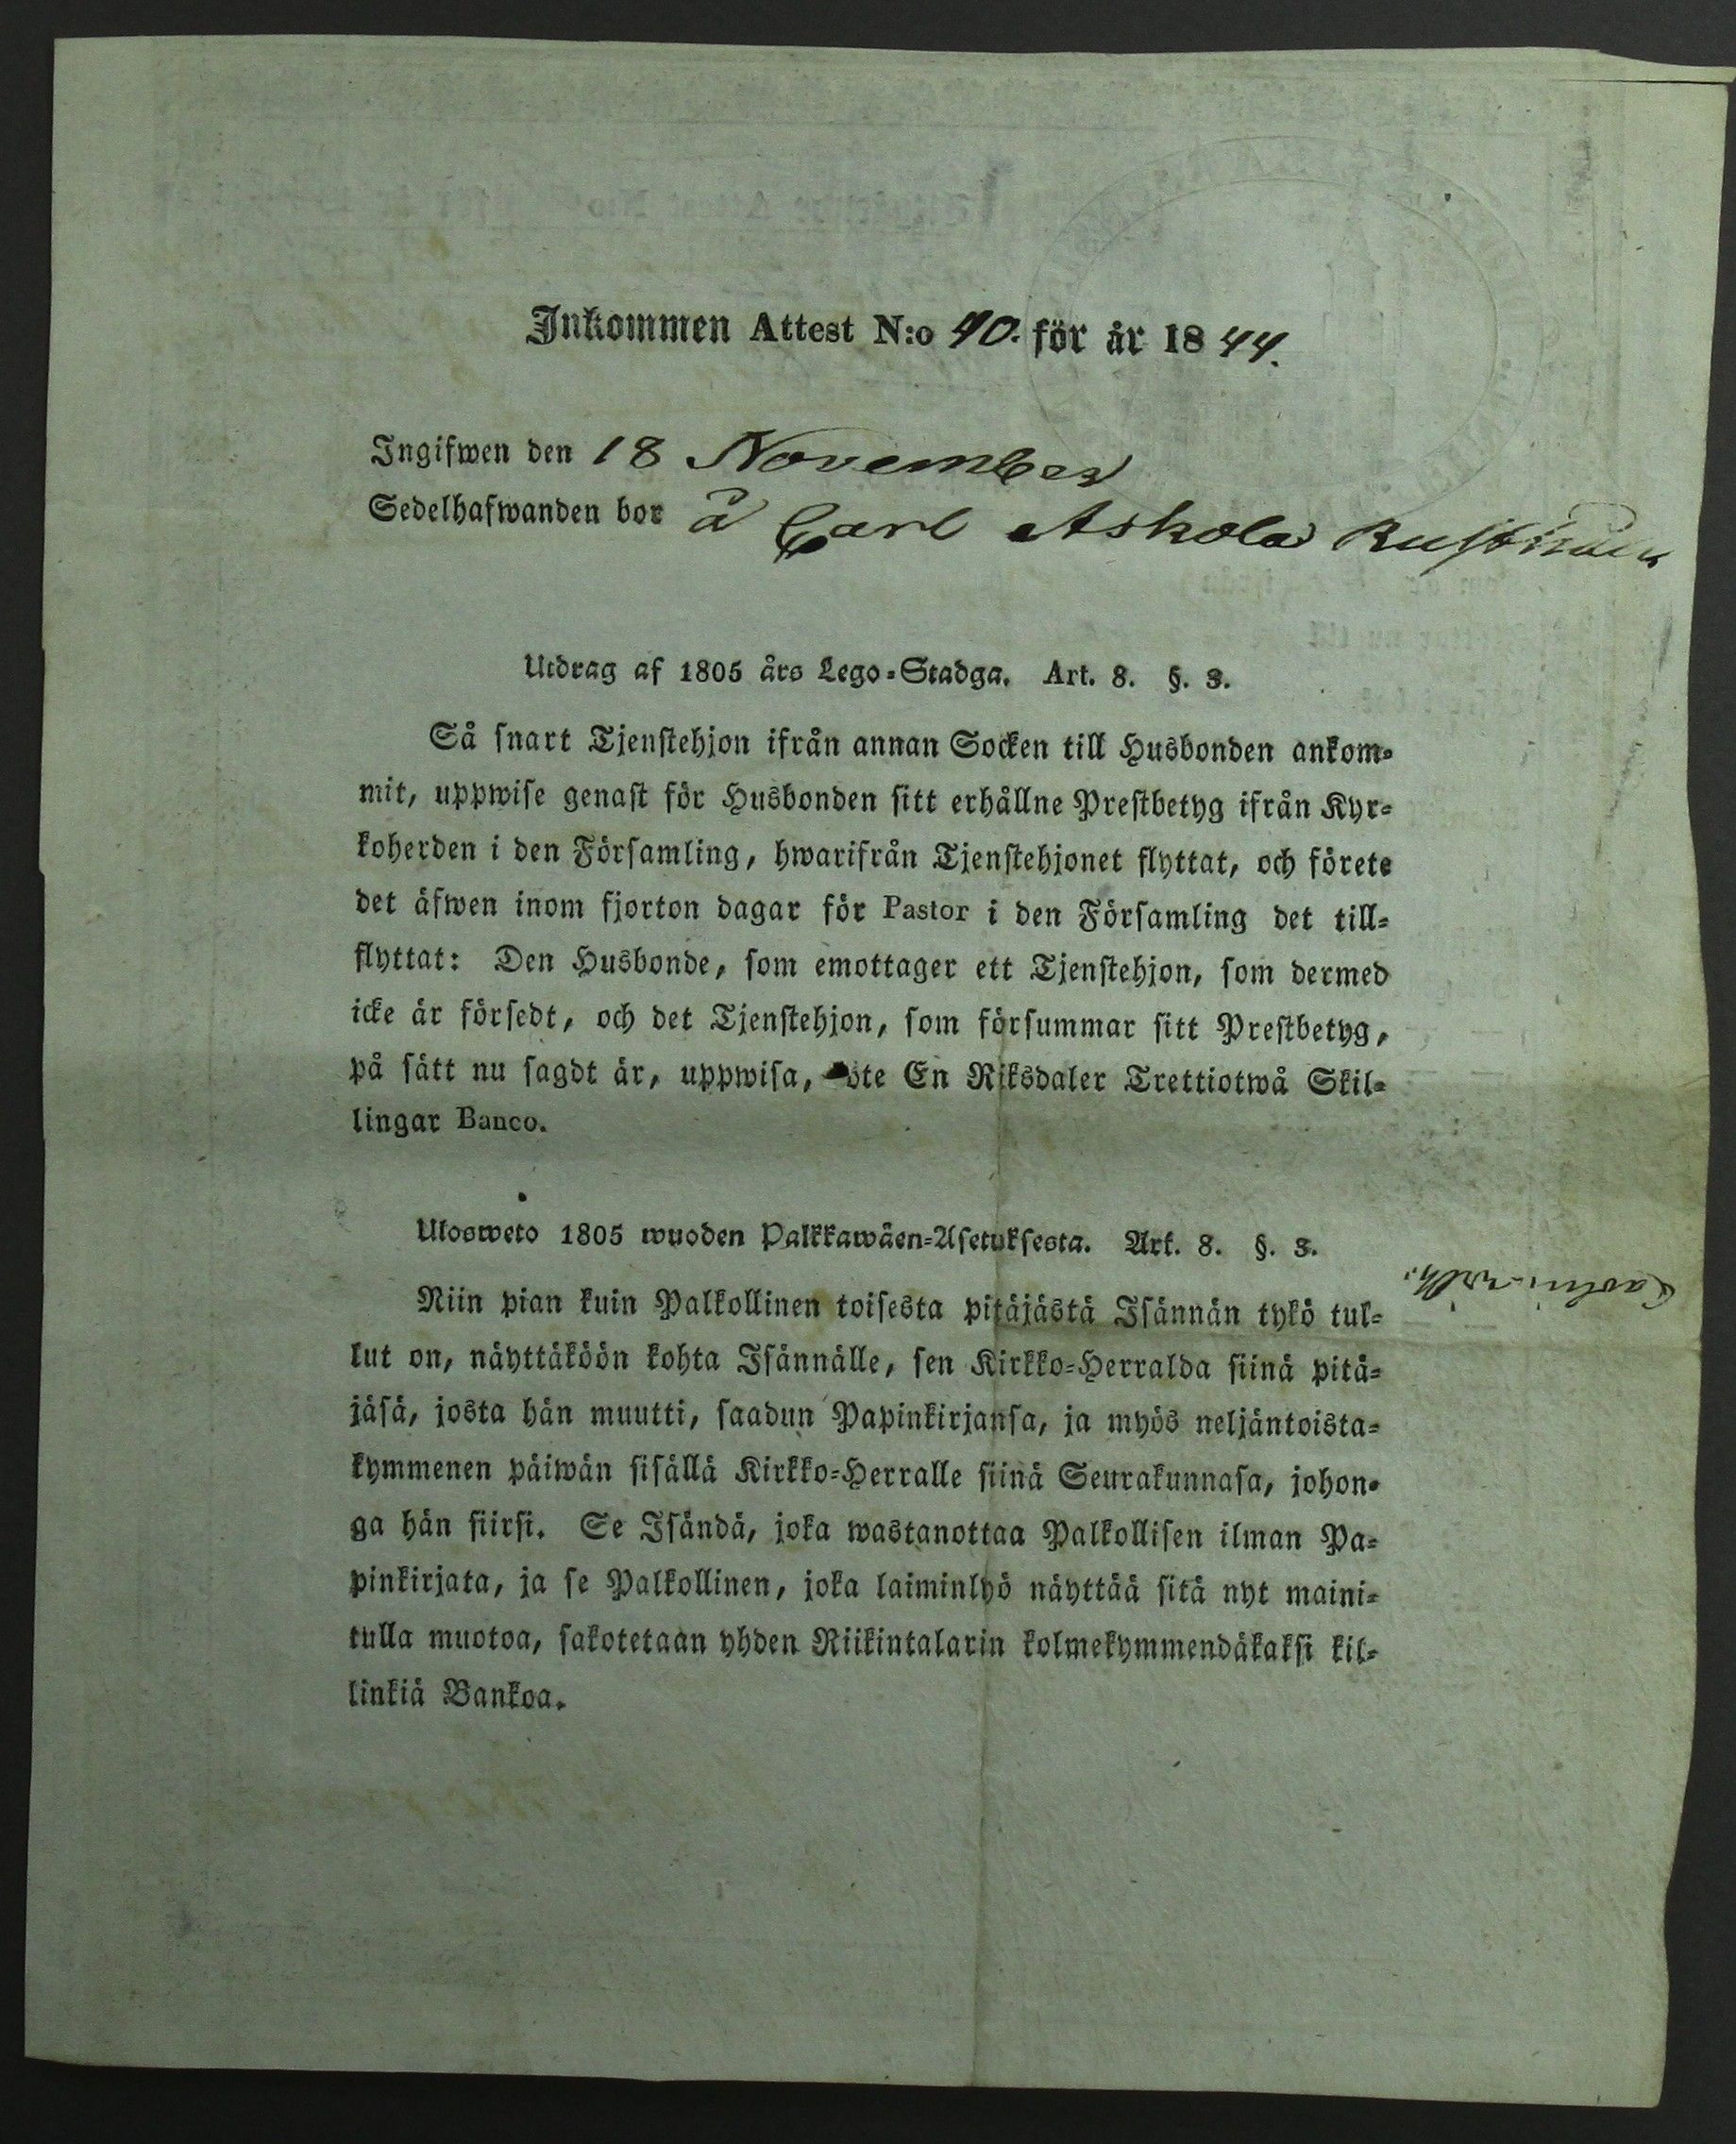 Inkommen Attest N:o 40. för år 1844.
Ingifwen den 18 November
Sedelhafwanden bor å Carl Askola Rusthåll
Utdrag af 1805 års Lego-Stadga. Art. 8. §. 3.
Så snart Tjenstehjon ifrån annan Socken till Husbonden ankom-
mit, uppwise genast för Husbonden sitt erhållne Prestbetyg ifrån Kyr-
koherden i den Församling, hwarifrån Tjenstehjonet flyttat, och förete
det äfwen inom fjorton dagar för Pastor i den Församling det till-
flyttat: Den Husbonde, som emottager ett Tjenstehjon, som dermed
icke är försedt, och det Tjenstehjon, som försummar sitt Prestbetyg,
på sätt nu sagdt är, uppwisa, böte En Riksdaler Trettiotwå Skil-
lingar Banco.
Ulosweto 1805 wuoden Palkkawäen-Asetuksesta. Art. 8. §. 3.
Niin pian kuin Palkollinen toisesta pitäjästä Isännän tykö tul-
lut on, näyttäköön kohta Isännälle, sen Kirkko-Herralda siinä pitä-
jäsä, josta hän muutti, saadun Papinkirjansa, ja myös neljäntoista-
kymmenen päiwän sisällä Kirkko-Herralle siinä Seurakunnasa, johon-
ga hän siirsi. Se Isändä, joka wastanottaa Palkollisen ilman Pa-
pinkirjata, ja se Palkollinen, joka laiminlyö näyttää sitä nyt maini-
tulla muotoa, sakotetaan yhden Riikintalarin kolmekymmendäkaksi kil-
linkiä Bankoa.